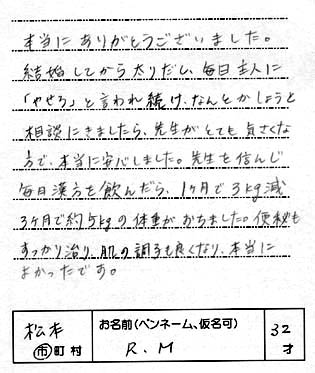 本当にありがとうございました。
結婚してから太りだし、毎日主人に
「やせろ」と言われ続け、なんとかしようと
相談にきましたら、先生がとても気さくな
方で、本当に安心しました。先生を信んじ
毎日漢方を飲んだら、1ヶ月で3kg減
3ヶ月で約5kgの体重がおちました。便秘も
すっかり治り、肌の調子も良くなり、本当に
よかったです。
松本
市町村
お名前(ペンネーム、仮名可)
R.M
32
才